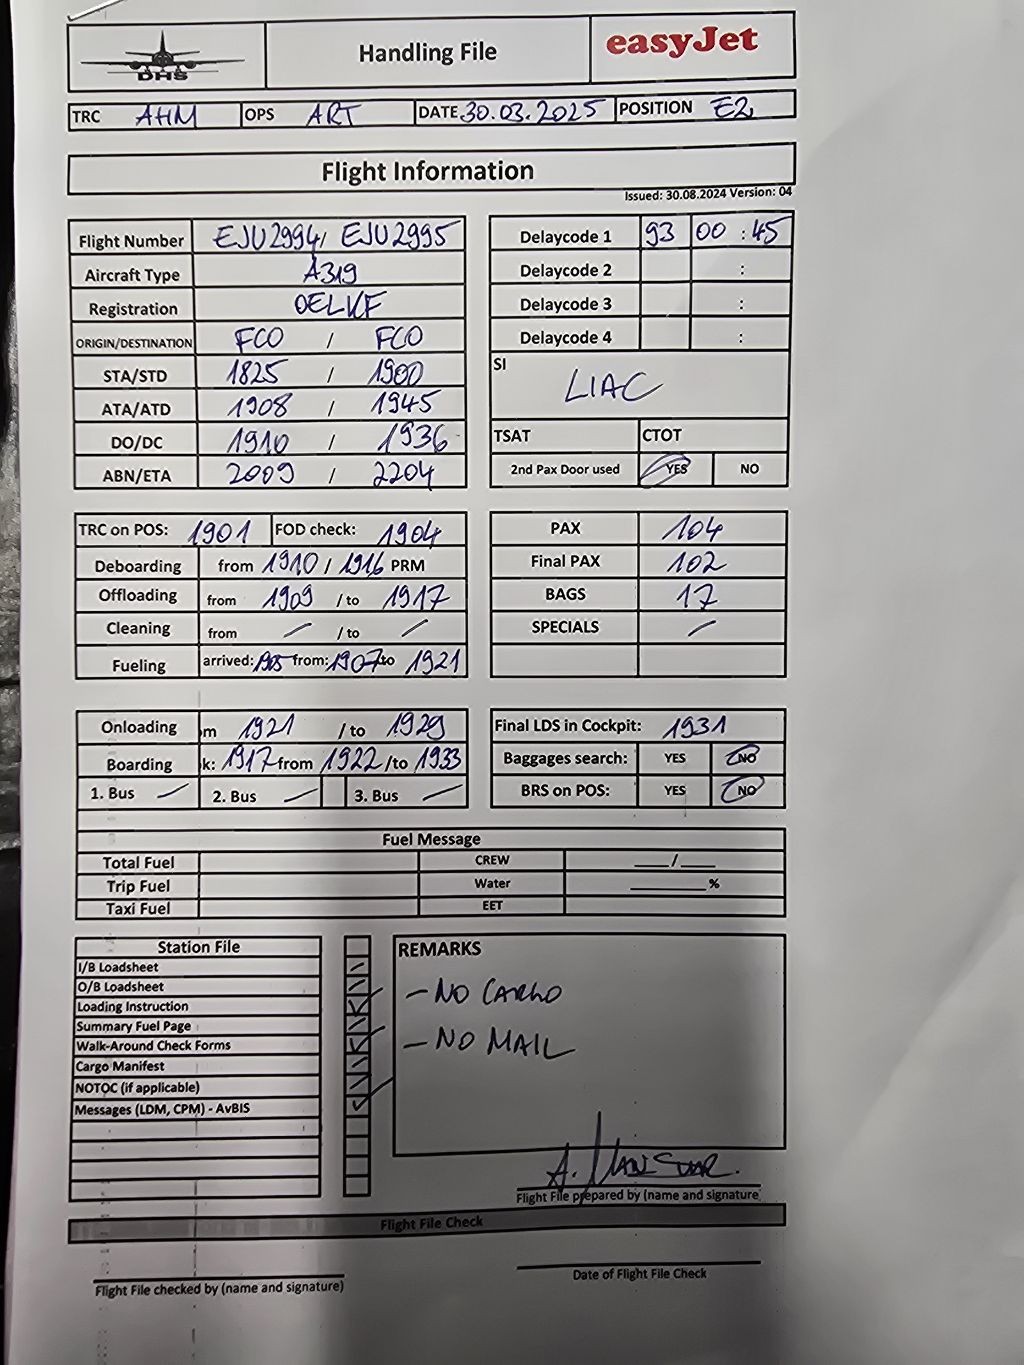 DHS
Handling File
easyJet
TRC AHM OPS ART DATE 30.03.2025 POSITION E2
Flight Information
Issued: 30.08.2024 Version: 04
Flight Number EJU2994/ EJU2995
Aircraft Type A319
Registration OELKF
ORIGIN/DESTINATION FCO / FCO
STA/STD 1825 / 1900
ATA/ATD 1908 / 1945
DO/DC 1910 / 1936
ABN/ETA 2009 / 2204
Delaycode 1 93 00 : 45
Delaycode 2 :
Delaycode 3 :
Delaycode 4 :
SI
LIAC
TSAT CTOT
2nd Pax Door used YES NO
TRC on POS: 1901 FOD check: 1904
Deboarding from 1910 / 1916 PRM
Offloading from 1909 / to 1917
Cleaning from – / to –
Fueling arrived: 1905 from: 1907 to 1921
PAX 104
Final PAX 102
BAGS 17
SPECIALS –
Onloading m 1921 / to 1929
Boarding k: 1917 from 1922 / to 1933
1. Bus – 2. Bus – 3. Bus –
Final LDS in Cockpit: 1931
Baggages search: YES NO
BRS on POS: YES NO
Fuel Message
Total Fuel CREW ___/___
Trip Fuel Water ______%
Taxi Fuel EET
Station File
I/B Loadsheet
O/B Loadsheet
Loading Instruction
Summary Fuel Page
Walk-Around Check Forms
Cargo Manifest
NOTOC (if applicable)
Messages (LDM, CPM) - AvBIS
REMARKS
– NO CARGO
– NO MAIL
Flight File prepared by (name and signature
Flight File Check
Flight File checked by (name and signature)
Date of Flight File Check